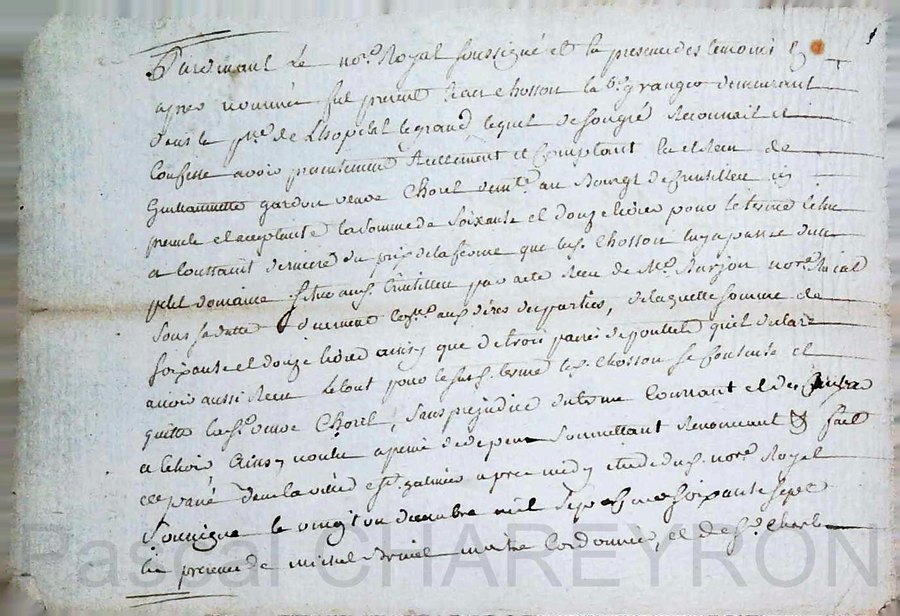 Pardevant le no.re Royal soussigné et la presence des temoins cy
apres nommés fut present Jean chosson la b.r granger demeurant
dans la p.se de Lhopital le grand lequel de son gré Reconnait et
Confesse avoir presentement Réellement et Comptant Eu et Recu de
gardon veuve Chorel au Bourgt de
presente et acceptante la somme de Soixante et douze livres pour le terme Echu
a toussaint derniere du prix de la ferme que led. chosson luy a passé dun
petit domaine situé aud. par acte Recu de M.e no.re Royal
Sous sa datte aux dires des parties, de laquelle somme de
soixante et douze livres ainsy que de trois paires de poulets quil declare
avoir aussi Recu Le tout pour le sus d. terme led. chosson se Contente et
quitte lad. veuve Chorel, sans prejudice du terme Courant et de
a Echoir Ainsy voulu a peine de depens soumettant Renonçant & fait
et passé dans la ville de S.t galmier apres midy etude dud. no.re Royal
soussigné le vingt un decembre mil sept cent soixante sept
En presence de michel maitre Cordonnier, et de S.r Charle
Pascal CHAREYRON